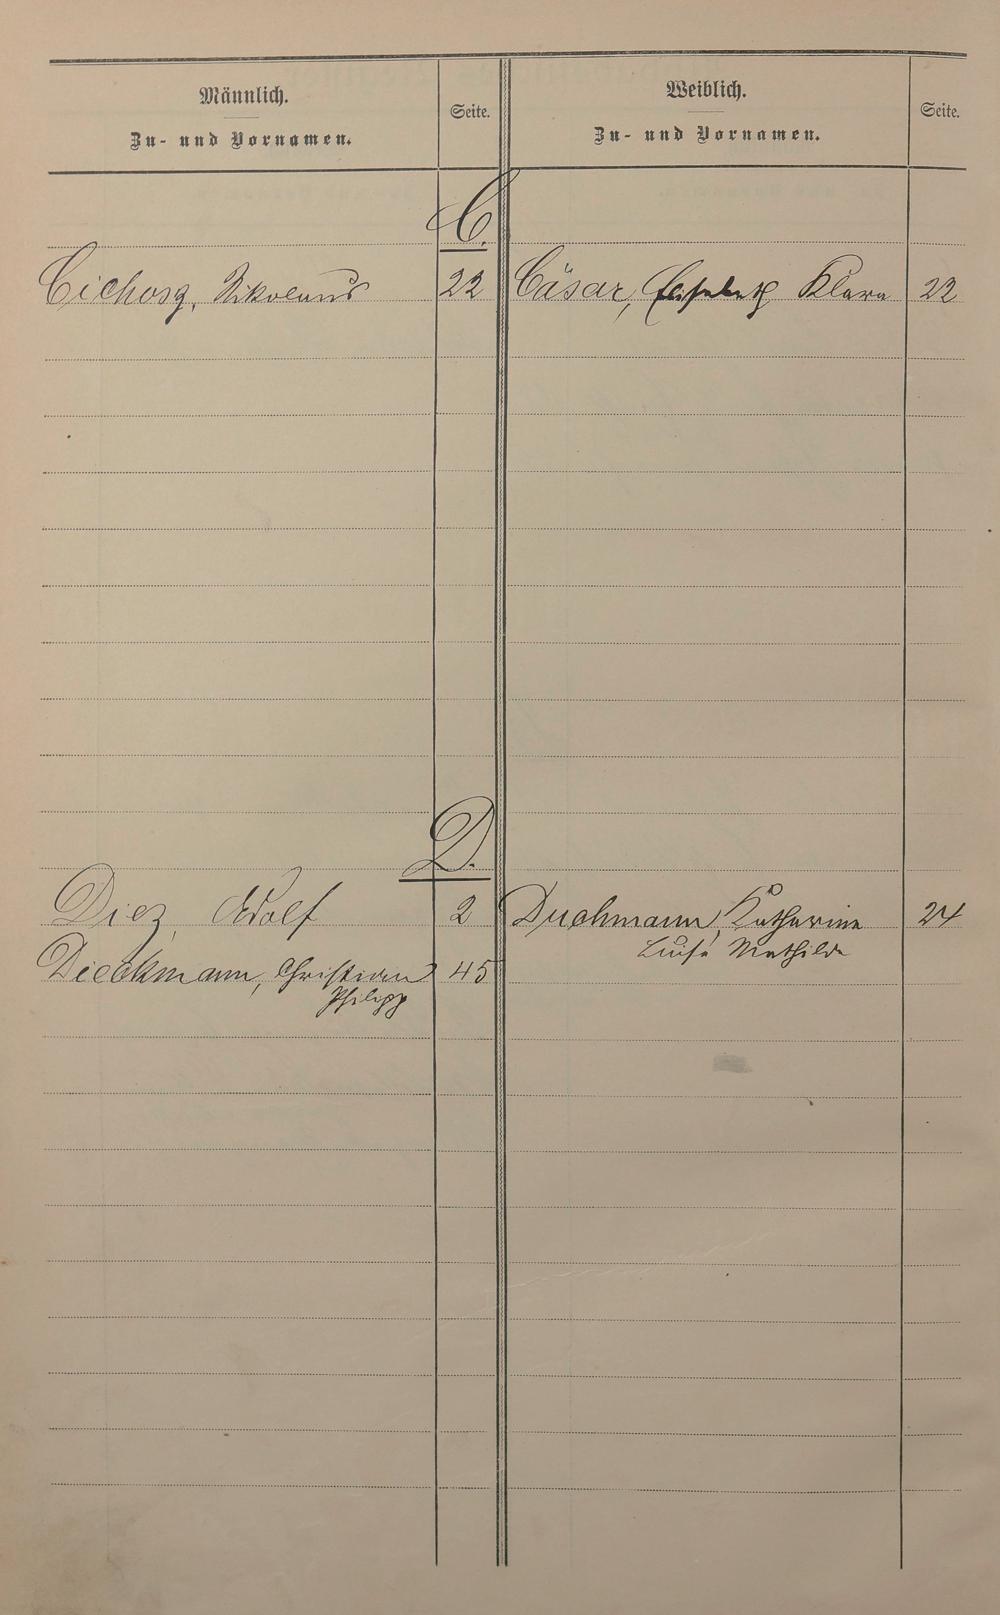 Männlich.
Zu- und Vornamen.
Seite.
Weiblich.
Zu- und Vornamen.
Seite.
C.
Cichosz, Nikolaus 22
Cäsar, Elisabeth Klara 22
D.
Diez, Adolf 2
Duchmann, Katharina 24
Luise Mathilde
Dieckmann, Christian 45
Philipp